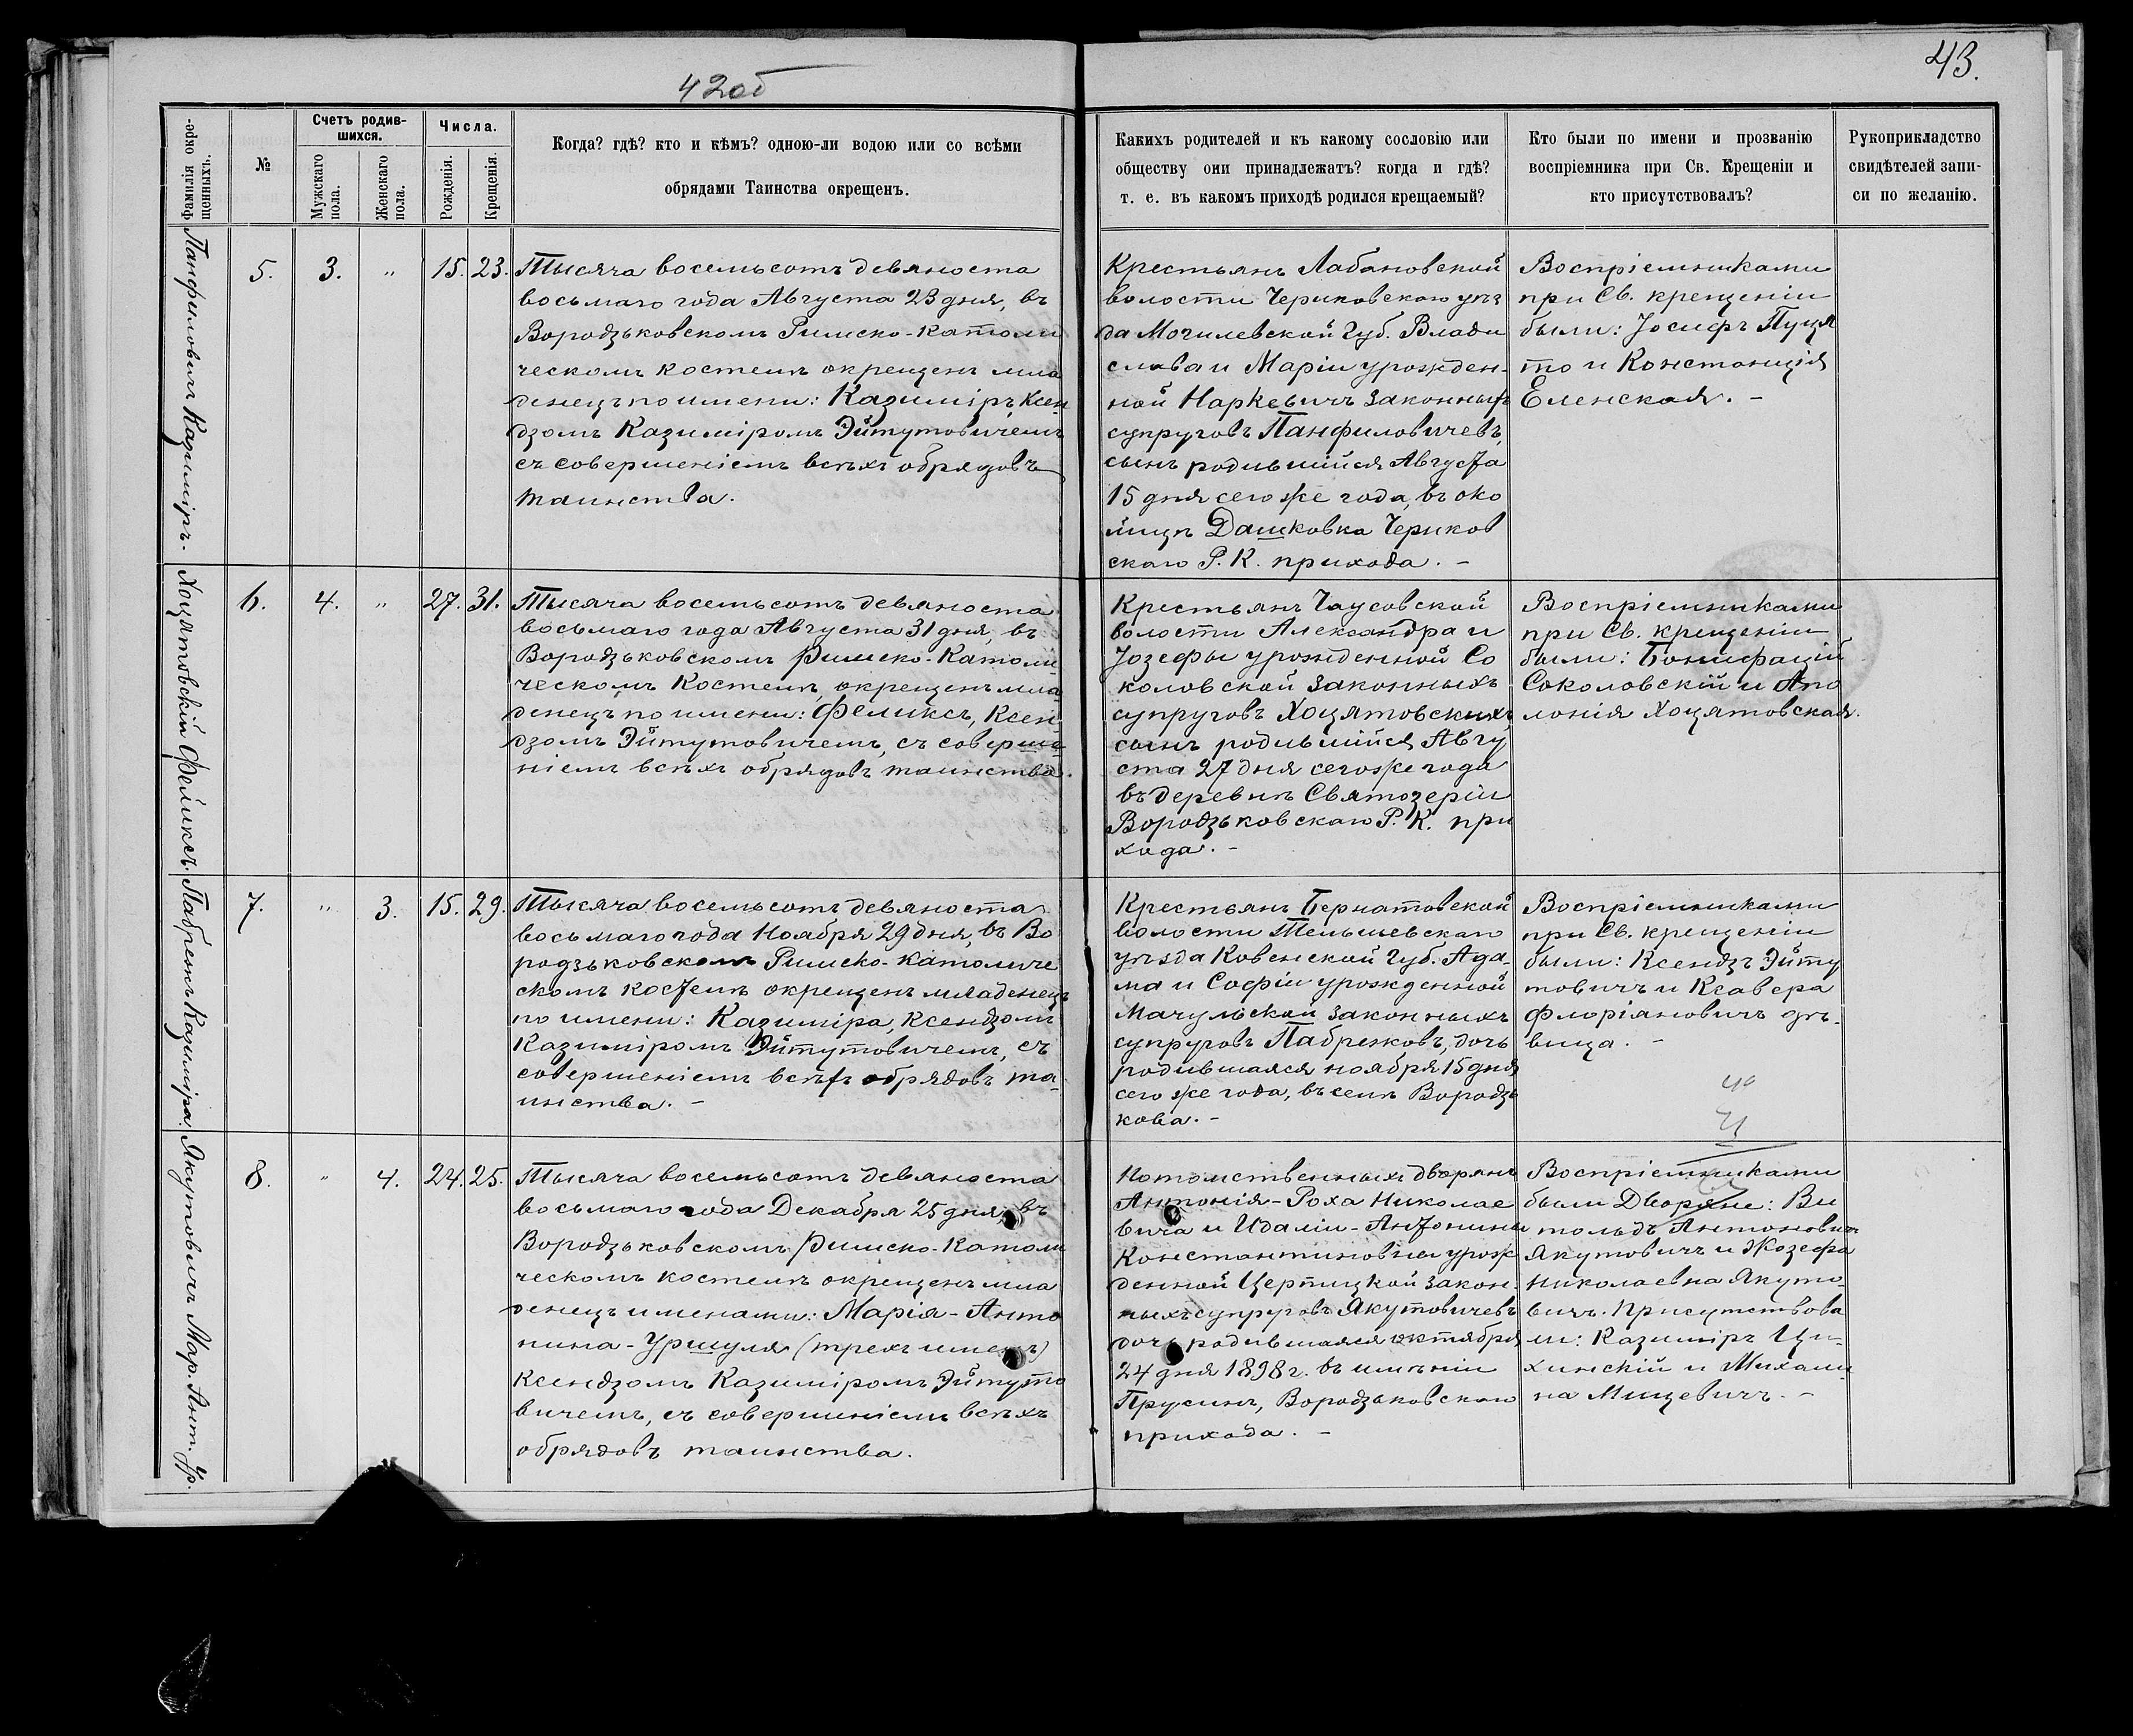 42об
43.
Фамилія окре-
щенныхъ.
№
Счетъ родив-
шихся.
Мужскаго
пола.
Женскаго
пола.
Числа.
Рожденія.
Крещенія.
Когда? гдѣ? кто и кѣмъ? одною-ли водою или со всѣми
обрядами Таинства окрещенъ.
Какихъ родителей и къ какому сословію или
обществу они принадлежатъ? когда и гдѣ?
т. е. въ какомъ приходѣ родился крещаемый?
Кто были по имени и прозванію
воспріемника при Св. Крещеніи и
кто присутствовалъ?
Рукоприкладство
свидѣтелей запи-
си по желанію.
Панфиловичъ Казиміръ.
5.
3.
"
15.
23.
Тысяча восемьсотъ девяноста
восьмаго года Августа 23 дня, въ
Вородзьковскомъ Римско-Католи
ческомъ костелѣ окрещенъ мла
денецъ по имени: Казиміръ, Ксен
дзомъ Казиміромъ Эйтутовичемъ
съ совершеніемъ всѣхъ обрядовъ
таинства.
Крестьянъ Лабановской
волости Чериковскаго уѣз
да Могилевской Губ. Влади
слава и Маріи урожден-
ной Наркевичъ законныхъ
супруговъ Панфиловичевъ,
сынъ родившійся Августа
15 дня сего же года, въ око
лицѣ Дашковка Чериков
скаго Р. К. прихода. -
Воспріемниками
при Св. крещеніи
были: Іосифъ Пуця
то и Констанція
Еленская. -
Хоцятовскій Феликсъ.
6.
4.
"
27.
31.
Тысяча восемьсотъ девяноста
восьмаго года Августа 31 дня, въ
Вородзьковскомъ Римско-Католи
ческомъ Костелѣ, окрещенъ мла
денецъ по имени: Феликсъ, Ксен
дзомъ Эйтутовичемъ, съ соверше
ніемъ всѣхъ обрядовъ таинства.
Крестьянъ Чаусовской
волости Александра и
Іозефы урожденной Со
коловской законныхъ
супруговъ Хоцятовскихъ
сынъ родившійся Авгу
ста 27 дня сего же года
въ деревнѣ Святозеріи
Вородзьковскаго Р. К. при
хода. -
Воспріемниками
при Св. крещеніи
были: Бонифацій
Соколовскій и Апо
лонія Хоцятовская.
Пабренъ Казиміра.
7.
"
3.
15.
29.
Тысяча восемьсотъ девяноста
восьмаго года Ноября 29 дня, въ Во
родзьковскомъ Римско-Католиче
скомъ костелѣ окрещенъ младенецъ
по имени: Казиміра, Ксендзомъ
Казиміромъ Эйтутовичемъ, съ
совершеніемъ всѣхъ обрядовъ та-
инства. -
Крестьянъ Бернатовской
волости Тельшевскаго
уѣзда Ковенской Губ. Ада-
ма и Софіи урожденной
Мачульской законныхъ
супруговъ Пабренковъ, дочь
родившаяся ноября 15 дня
сего же года, въ селѣ Вородзь
кова. -
Воспріемниками
при Св. крещеніи
были: Ксендзъ Эйту
товичъ и Ксавера
Флоріановичъ дѣ-
вица. -
Якутовичъ Мар. Ант. Ур.
8.
"
4.
24.
25.
Тысяча восемьсотъ девяноста
восьмаго года Декабря 25 дня въ
Вородзьковскомъ Римско-Католи
ческомъ костелѣ окрещенъ мла
денецъ именами: Марія-Анто
нина-Уршуля (трехъ именъ)
Ксендзомъ Казиміромъ Эйтуто
вичемъ, съ совершеніемъ всѣхъ
обрядовъ таинства.
Потомственныхъ дворянъ
Антонія-Роха Николае
вича и Идаліи-Антонины
Константиновны урож
денной Цертицкой закон-
ныхъ супруговъ Якутовичевъ
дочь родившаяся октября
24 дня 1898 г. въ имѣніи
Прусинъ, Вородзьковскаго
прихода. -
Воспріемниками
были Дворяне: Ви
тольдъ Антоновичъ
Якутовичъ и Жозефа
Николаевна Якуто-
вичъ. Присутствова
ли: Казиміръ Ци-
хинскій и Михали-
на Мицевичъ. -